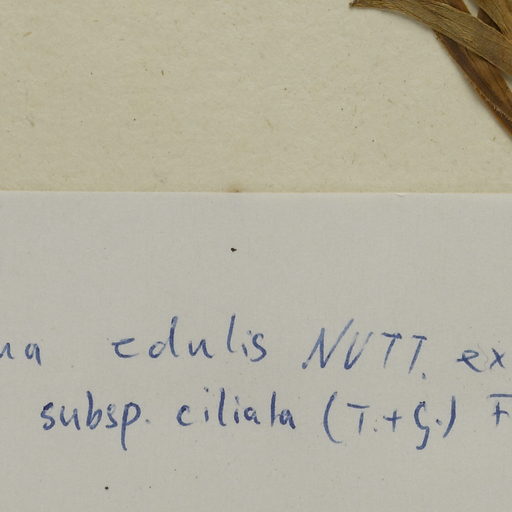 na edulis NUTT. ex
subsp. ciliata (T.+G.) F